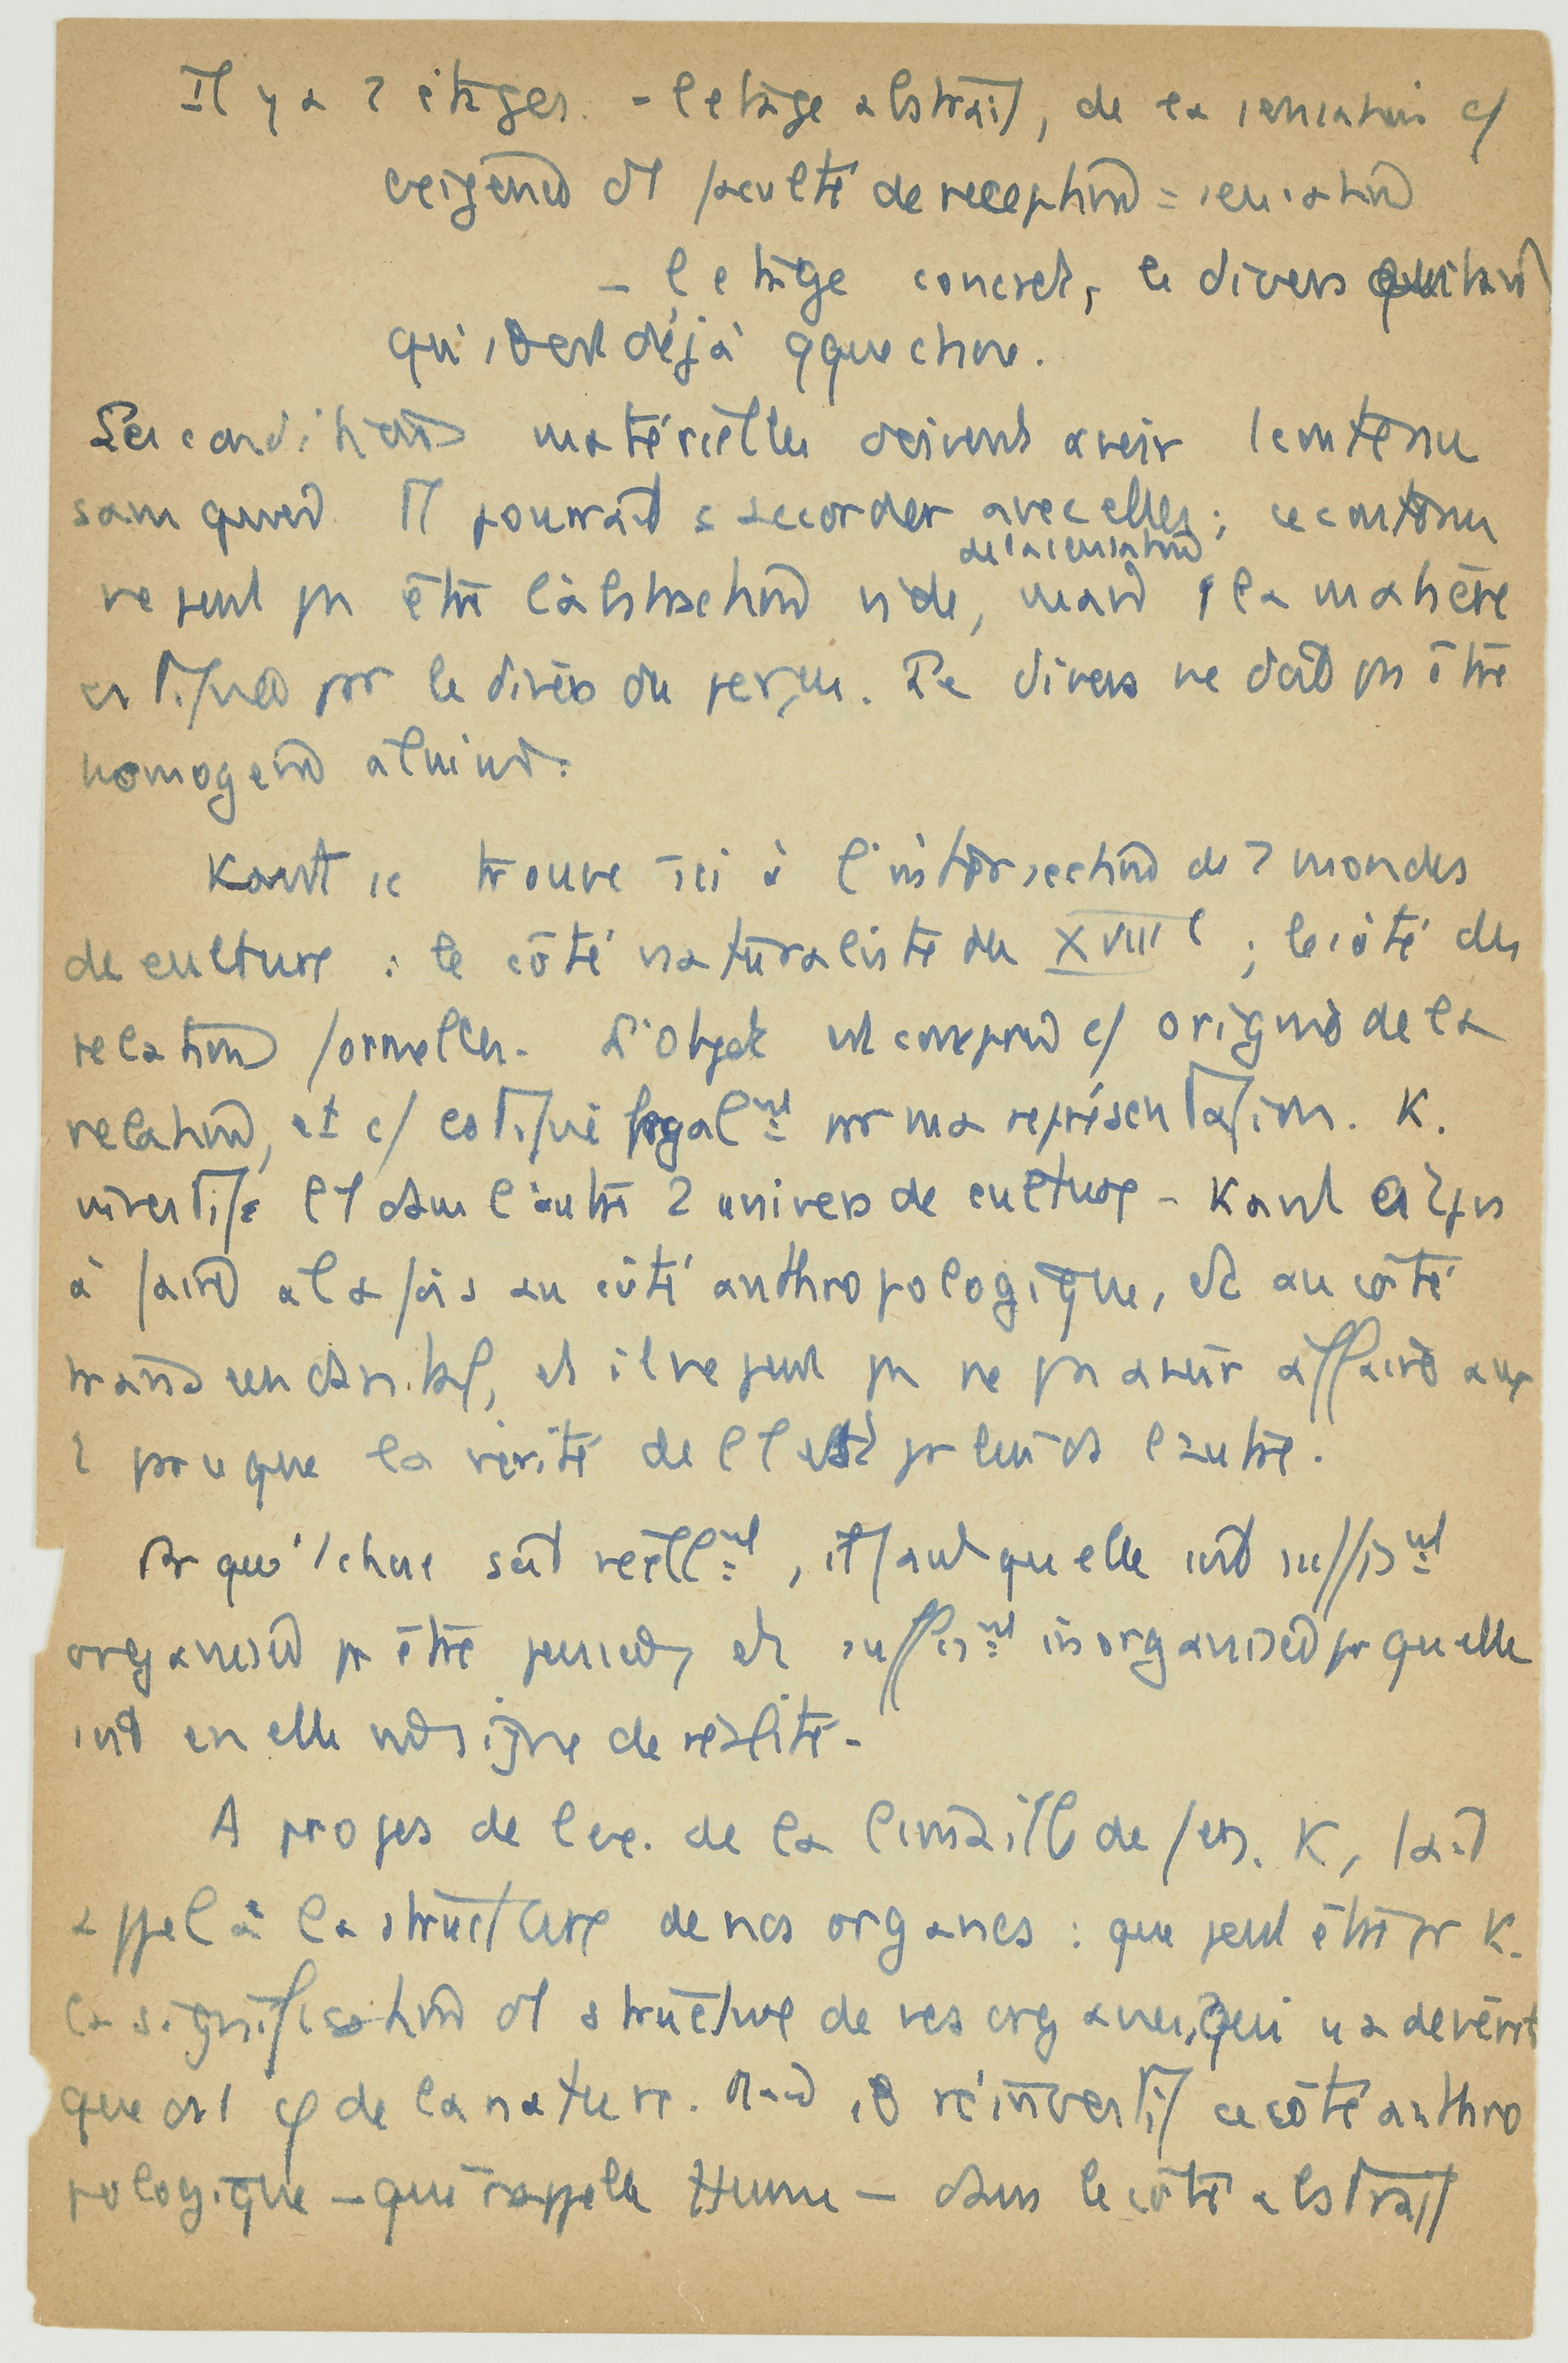 Il y a 2 étages. - l'etage abstrait, de la sensation c/
exigence d'1 faculté de reception = sensation
- l'etage concret, le divers existant
qui est déjà qque chose.
Les conditions matérielles doivent avoir 1 contenu
sans quoi il pourrait s'accorder avec elles ; ce contenu
de la sensation
ne peut pas être l'abstraction vide, mais la matière
constituée par le divers du perçu. Le divers ne doit pas être
homogene à lui
Kant se trouve ici à l'intersection de 2 mondes
de culture : le côté naturaliste du XVIIIe ; le côté des
relations formelles. L'objet est compris c/ origine de la
relation, et c/ constitué légalmt par ma représentation. K.
investit l'1 dans l'autre 2 univers de culture - Kant a
à faire à la fois au côté anthropologique, et au côté
transcendental, et il ne peut pas ne pas avoir affaire aux
2 parce que la vérité de l'1 est pr lui ds l'autre.
Pr qu'1 chose soit réellmt, il faut qu'elle soit suffismt
organisée pr être pensée, et suffismt inorganisée pr qu'elle
soit en elle signe de réalité -
A propos de l'ex. de la limaille de fer. K, fait
appel à la structure de nos organes : que peut être pr K.
la signification d'1 structure de nos organes, qui n'a de vérité
que ds 1 φ de la nature. Mais il réinvestit ce côté anthro
pologique - qui rappelle Hume - dans le côté abstrait